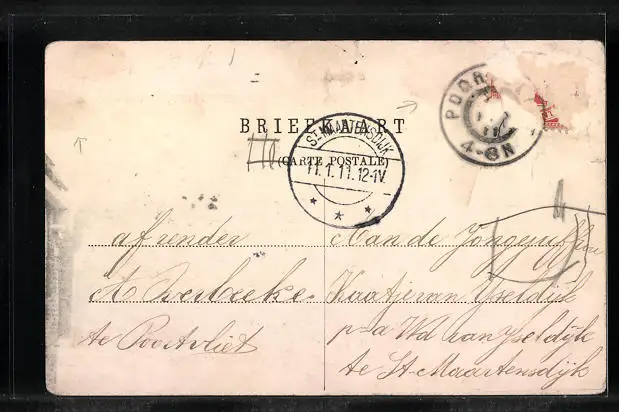 BRIEFKAART
(CARTE POSTALE)
ST. MAARTENSDIJK
11.1.11.12-1V.
POOR
4-6N
afzender
A Overbeeke
te Poortvliet
Aan de Jongejuffrou
Kaatje van IJseldijk
p-a Wd van IJseldijk
te St-Maartensdijk